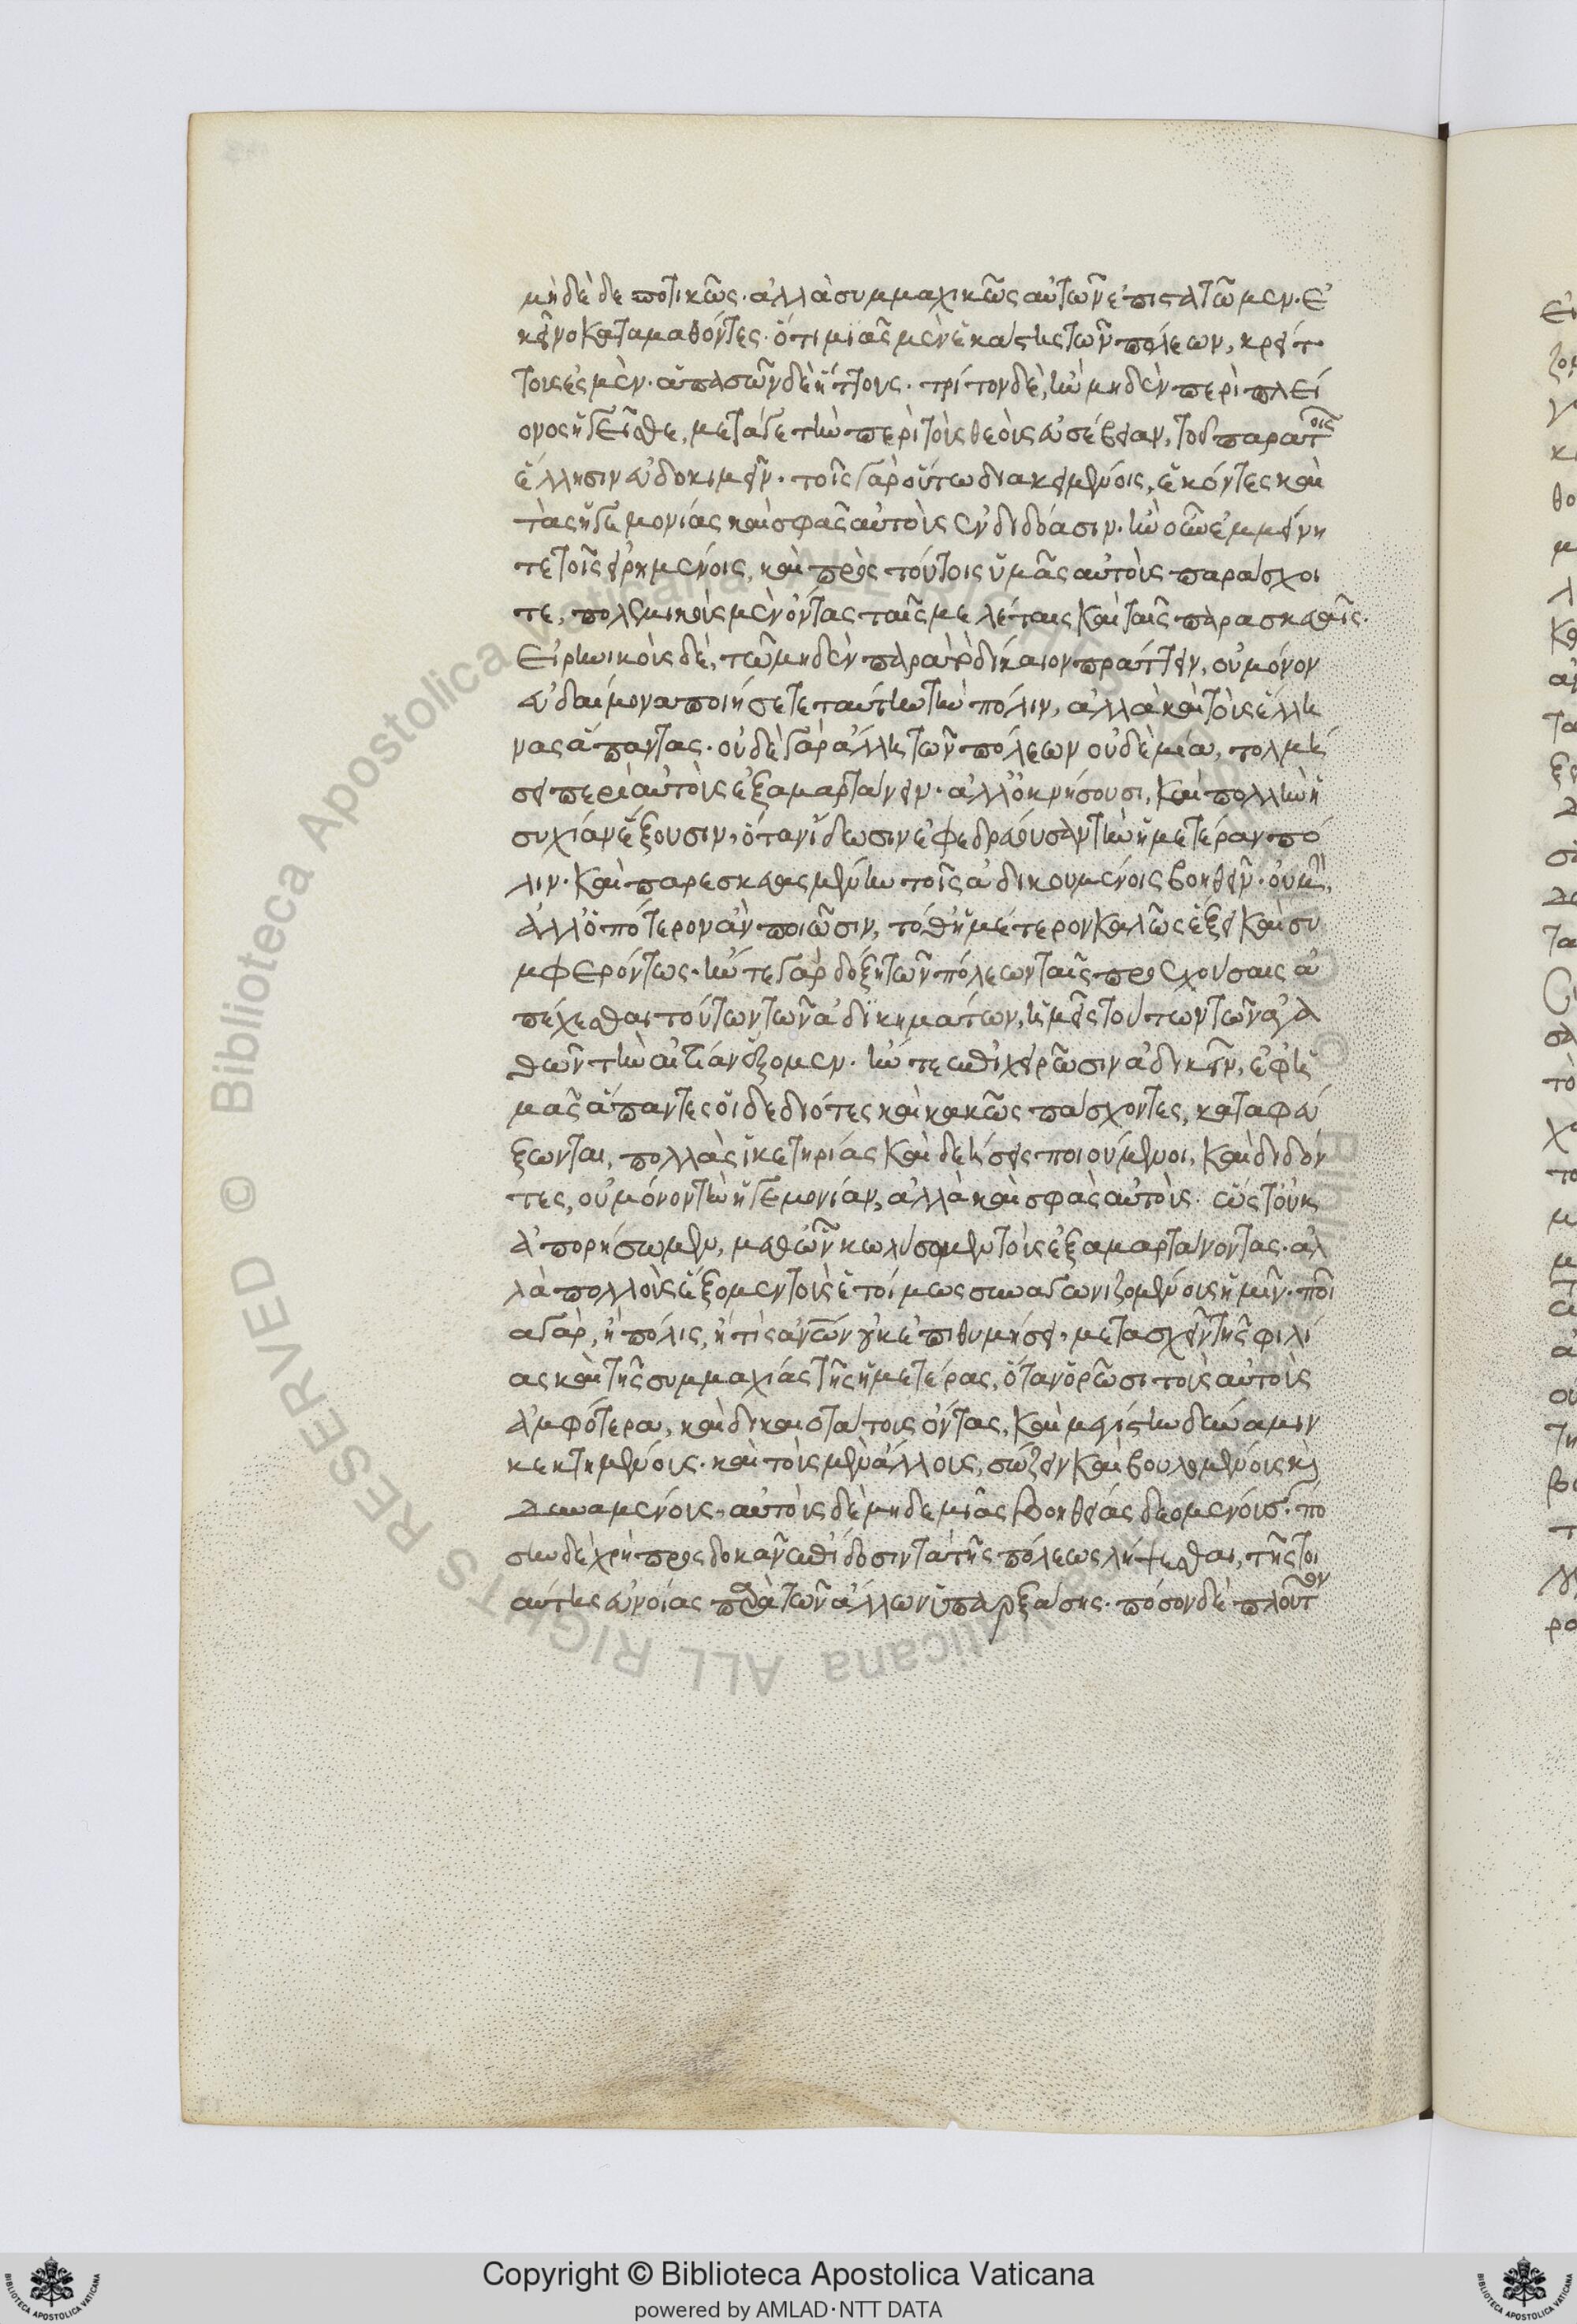 μηδὲ δεσποτικῶς· ἀλλὰ συμμαχικῶς αὐτῶν ἐπιστατῶμεν· ἐ
κεῖνο καταμαθόντες· ὅτι μιᾶς μὲν ἑκάστης τῶν πόλεων, κρείτ
τους ἐσμὲν· ἁπασῶν δὲ ἥττους· τρίτον δὲ, ἢν μηδὲν περὶ πλεί
ονος ἡγεῖσθε, μετά γε τὴν περὶ τοὺς θεοὺς εὐσέβειαν, τοῦ παρὰ τοῖς
ἕλλησιν εὐδοκιμεῖν· τοῖς γὰρ οὕτω διακειμένοις, ἑκόντες καὶ
τὰς ἡγεμονίας καὶ σφᾶς αὐτοὺς ἐνδιδόασιν· ἢν οὖν ἐμμείνη
τε τοῖς εἰρημένοις, καὶ πρὸς τούτοις ὑμᾶς αὐτοὺς παράσχοι
τε, πολεμικοὺς μὲν ὄντας ταῖς μελέταις καὶ ταῖς παρασκευαῖς·
εἰρηνικοὺς δὲ, τῷ μηδὲν παρὰ τὸ δίκαιον πράττειν, οὐ μόνον
εὐδαίμονα ποιήσετε ταύτην τὴν πόλιν, ἀλλὰ καὶ τοὺς ἕλλη
νας ἅπαντας· οὐδὲ γὰρ ἄλλη τῶν πόλεων οὐδὲ μία, τολμή
σει περὶ αὐτοὺς ἐξαμαρτάνειν· ἀλλ' ὀκνήσουσι, καὶ πολλὴν ἡ
συχίαν ἕξουσιν, ὅταν ἴδωσιν ἐφεδρεύουσαν τὴν ἡμετέραν πό
λιν· καὶ παρεσκευασμένην τοῖς ἀδικουμένοις βοηθεῖν· οὐ μὴν,
ἀλλ' ὁπότερον ἂν ποιῶσιν, τό θ' ἡμέτερον καλῶς ἕξει καὶ συ
μφερόντως· ἤν τε γὰρ δόξη τῶν πόλεων ταῖς προεχούσαις ἀ
πέχεσθαι τούτων τῶν ἀδικημάτων, ἡμεῖς τούτων τῶν ἀγα
θῶν τὴν αἰτίαν ἕξομεν· ἤν τε ἐπιχειρῶσιν ἀδικεῖν, ἐφ' ἡ
μᾶς ἅπαντες οἱ δεδιότες καὶ κακῶς πάσχοντες, καταφεύ
ξωνται, πολλὰς ἱκετηρίας καὶ δεήσεις ποιούμενοι, καὶ διδόν
τες, οὐ μόνον τὴν ἡγεμονίαν, ἀλλὰ καὶ σφᾶς αὐτοὺς· ὥστ' οὐκ
ἀπορήσωμεν, μεθ' ὧν κωλύσομεν τοὺς ἐξαμαρτάνοντας· ἀλ
λὰ πολλοὺς ἕξομεν τοὺς ἑτοίμως συναγωνιζομένους ἡμῖν· ποί
α γὰρ, ἢ πόλις, ἢ τίς ἀνθρώπων οὐκ ἐπιθυμήσει, μετασχεῖν τῆς φιλί
ας καὶ τῆς συμμαχίας τῆς ἡμετέρας, ὅταν ὁρῶσι τοὺς αὐτοὺς
ἀμφότερα, καὶ δικαιοτάτους ὄντας, καὶ μεγίστην δύναμιν
κεκτημένους· καὶ τοὺς μὲν ἄλλους, σώζειν καὶ βουλομένους καὶ
δυναμένους, αὐτοὺς δὲ μηδεμιᾶς βοηθείας δεομένους· πό
σην δὲ χρὴ προσδοκᾶν ἐπίδοσιν τὰ τῆς πόλεως λήψεσθαι, τῆς τοι
αύτης εὐνοίας παρὰ τῶν ἄλλων ὑπαρξάσης· πόσον δὲ πλοῦτον